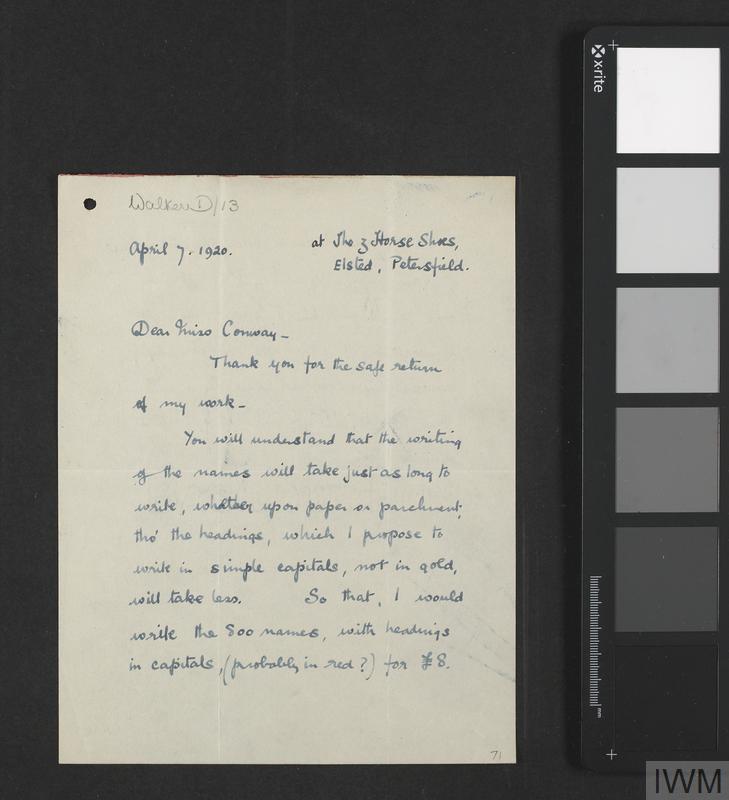 Walker D/13
April 7. 1920.
at The 3 Horse Shoes,
Elsted, Petersfield.
Dear Miss Conway_
Thank you for the safe return
of my work_
You will understand that the writing
of the names will take just as long to
write, whether upon paper or parchment,
tho' the headings, which I propose to
write in simple capitals, not in gold,
will take less. So that, I would
write the 800 names, with headings
in capitals, (probably in red?) for £8.
71
x-rite
mm
IWM